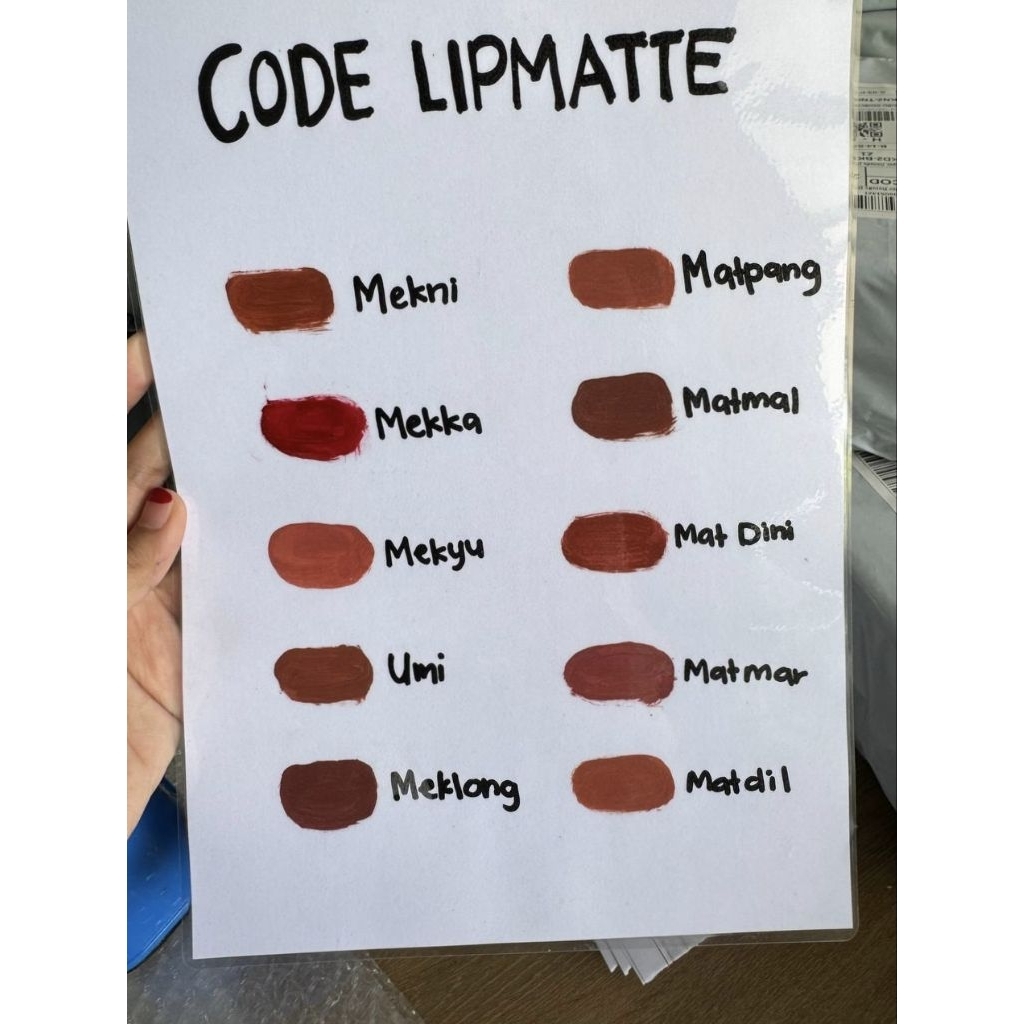 CODE LIPMATTE
Mekni
Mekka
Mekyu
Umi
Meklong
Matpang
Matmal
Mat Dini
Matmar
Matdil
COD